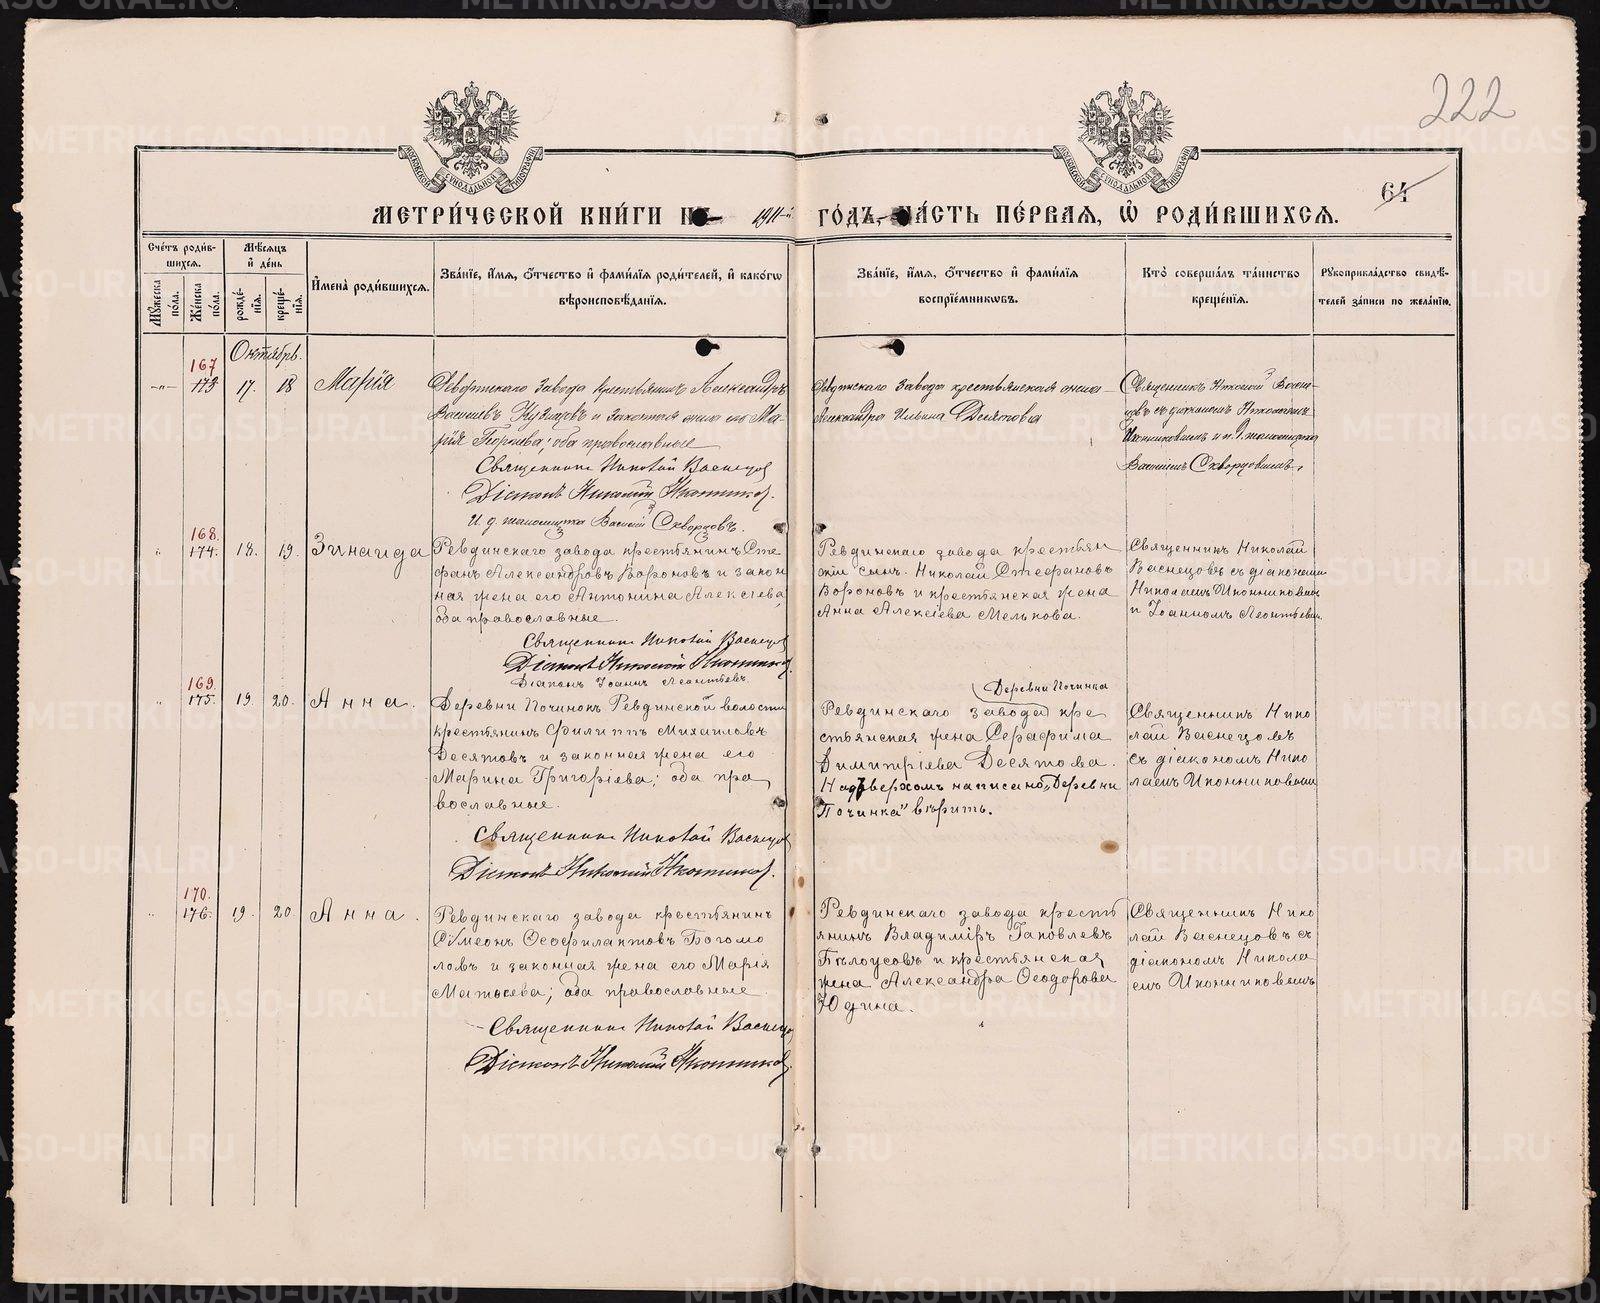 222
64
МОСКОВСКОЙ СѴНОДАЛЬНОЙ ТИПОГРАФІИ
МОСКОВСКОЙ СѴНОДАЛЬНОЙ ТИПОГРАФІИ
МЕТРИ́ЧЕСКОЙ КНИ́ГИ НА 1911-й ГО́ДЪ, ЧА́СТЬ ПЕ́РВАЯ, Ѡ҆ РОДИ́ВШИХСЯ.
Сче́тъ роди́в-
шихся.
Мѣ́сяцъ
и҆ де́нь
Мꙋ́жеска по́ла.
Же́нска по́ла.
рожде́-
нїя.
креще́-
нїя.
И҆мена̀ роди́вшихся.
Зва́нїе, и҆́мя, ѻ҆́тчество и҆ фами́лїя роди́телей, и҆ како́гѡ
вѣроисповѣ́данїя.
Зва́нїе, и҆́мя, ѻ҆́тчество и҆ фами́лїя
воспрїе́мникѡвъ.
Кто̀ соверша́лъ та́инство
креще́нїя.
Рꙋкоприкла́дство свидѣ́-
телей за́писи по жела́нїю.
Октябрь.
167
-„- 173 17. 18 Марія
Ревдинскаго завода крестьянинъ Александръ
Васильевъ Кузнцовъ и законная жена его Ма-
рія Георгіева; оба православные
Священникъ Николай Васнецов
Діаконъ Николай Иконников.
И. д. псаломщика Василій Скворцовъ.
Ревдинскаго завода крестьянская жена
Александра Ильина Десятова
Священникъ Николай Васне-
цовъ съ діакономъ Николаемъ
Иконниковымъ и и. д. псаломщика
Василіемъ Скворцовымъ.
168.
„ 174. 18. 19. Зинаида
Ревдинскаго завода крестьянинъ Сте
фанъ Александровъ Вороновъ и закон
ная жена его Антонина Алексіева,
оба православные.
Священникъ Николай Васнецов
Діаконъ Николай Иконников.
Діаконъ Іоаннъ Леонтьевъ
Ревдинскаго завода крестьян
скій сынъ Николай Стефановъ
Вороновъ и крестьянская жена
Анна Алексіева Мелькова.
Священникъ Николай
Васнецовъ съ діаконами
Николаемъ Иконниковымъ
и Іоанномъ Леонтьевым.
169.
„ 175. 19. 20. Анна.
Деревни Починокъ Ревдинской волости
крестьянинъ Филиппъ Михаиловъ
Десятовъ и законная жена его
Марина Григоріева; оба пра
вославные.
Священникъ Николай Васнецов
Діаконъ Николай Иконников.
Деревни Починка
Ревдинскаго завода кре
стьянская жена Серафима
Димитріева Десятова.
Надъ верхомъ написано „Деревни
Починка" вѣрить.
Священникъ Нико
лай Васнецовъ
съ діакономъ Нико
лаемъ Иконниковым
170.
„ 176. 19. 20. Анна.
Ревдинскаго завода крестьянинъ
Сімеонъ Ѳеофилактовъ Богомо
ловъ и законная жена его Марія
Матѳеева; оба православные.
Священникъ Николай Васнецов
Діаконъ Николай Иконников.
Ревдинскаго завода кресть
янинъ Владиміръ Іаковлевъ
Бѣлоусовъ и крестьянская
жена Александра Ѳеодорова
Юдина.
Священникъ Нико
лай Васнецовъ съ
діакономъ Никола
емъ Иконниковымъ
METRIKI.GASO-URAL.RU